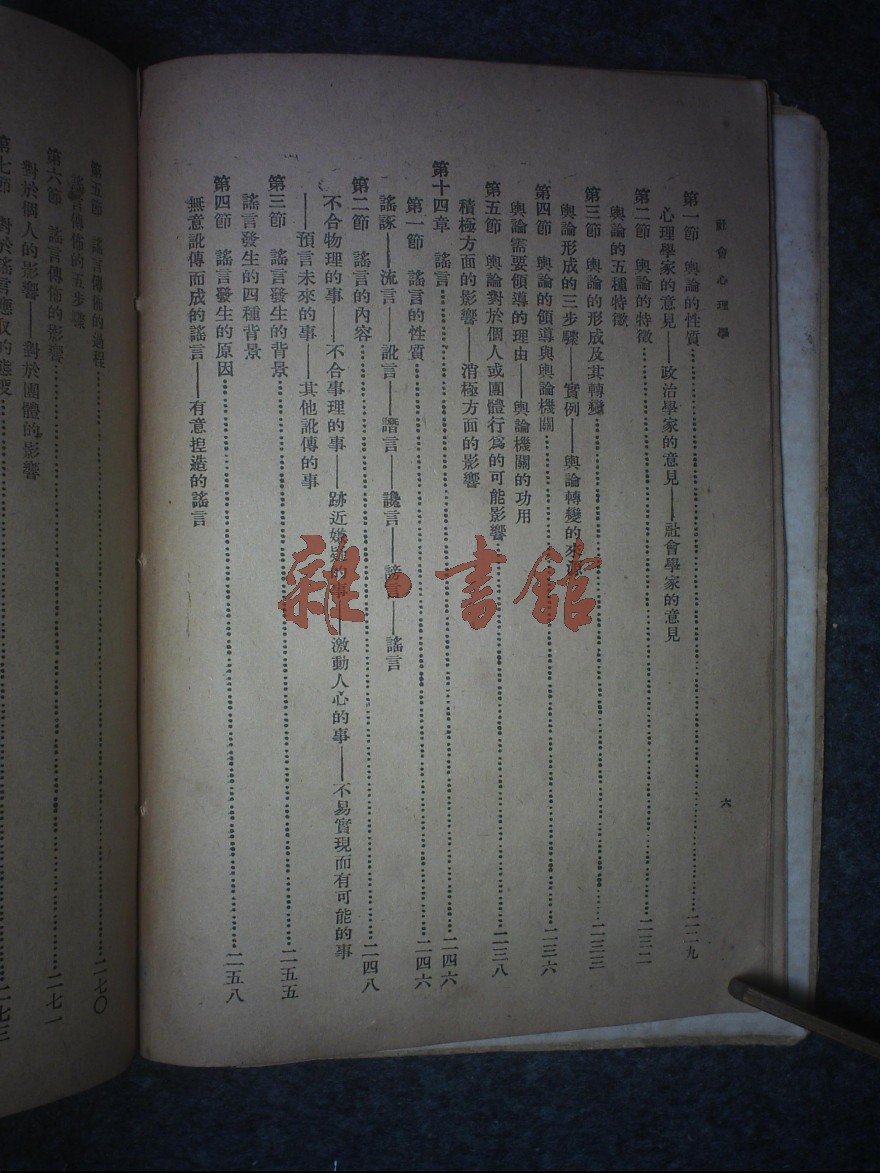 社會心理學
六
第一節 輿論的性質……二二九
心理學家的意見——政治學家的意見——社會學家的意見
第二節 輿論的特徵……二三二
輿論的五種特徵
第三節 輿論的形成及其轉變……二三三
輿論形成的三步驟——實例——輿論轉變的來源
第四節 輿論的領導與輿論機關……二三六
輿論需要領導的理由——輿論機關的功用
第五節 輿論對於個人或團體行為的可能影響……二三八
積極方面的影響——消極方面的影響
第十四章 謠言……二四六
第一節 謠言的性質……二四六
謠諑——流言——訛言——譖言——讒言——謗言——謠言
第二節 謠言的內容……二四八
不合物理的事——不合事理的事——跡近嫌疑的事——激動人心的事——不易實現而有可能的事
——預言未來的事——其他訛傳的事
第三節 謠言發生的背景……二五五
謠言發生的四種背景
第四節 謠言發生的原因……二五八
無意訛傳而成的謠言——有意捏造的謠言
第五節 謠言傳佈的過程……二七〇
謠言傳佈的五步驟
第六節 謠言傳佈的影響……二七一
對於個人的影響——對於團體的影響
第七節 對於謠言應取的態度……二七三
雜·書館